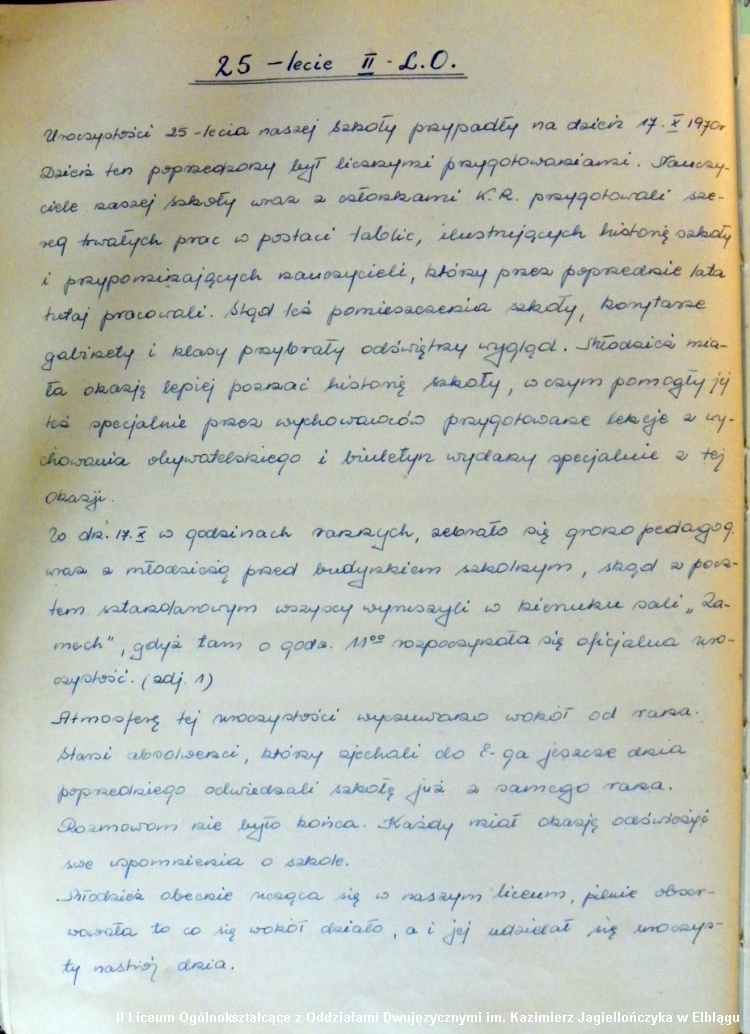 25 - lecie II - L.O.
Uroczystości 25-lecia naszej szkoły przypadły na dzień 17. X 1970r.
Dzień ten poprzedzony był licznymi przygotowaniami. Nauczy-
ciele naszej szkoły wraz z członkami K.R. przygotowali sze-
reg trwałych prac w postaci tablic, ilustrujących historię szkoły
i przypominających nauczycieli, którzy przez poprzednie lata
tutaj pracowali. Stąd też pomieszczenia szkoły, korytarze
gabinety i klasy przybrały odświętny wygląd. Młodzież mia-
ła okazję lepiej poznać historię szkoły, w czym pomogły jej
też specjalnie przez wychowawców przygotowane lekcje z wy-
chowania obywatelskiego i biuletyn wydany specjalnie z tej
okazji.
W dn. 17. X w godzinach rannych, zebrało się grono pedagog.
wraz z młodzieżą przed budynkiem szkolnym, skąd z pocz-
tem sztandarowym wszyscy wyruszyli w kierunku sali „Za-
mech", gdyż tam o godz. 11⁰⁰ rozpoczynała się oficjalna uro-
czystość. (zdj. 1)
Atmosferę tej uroczystości wyczuwano wokół od rana.
Starsi absolwenci, którzy zjechali do E-ga jeszcze dnia
poprzedniego odwiedzali szkołę już z samego rana.
Rozmowom nie było końca. Każdy miał okazję odświeżyć
swe wspomnienia o szkole.
Młodzież obecnie ucząca się w naszym liceum, pilnie obser-
wowała to co się wokół działo, a i jej udzielał się uroczys-
ty nastrój dnia.
II Liceum Ogólnokształcące z Oddziałami Dwujęzycznymi im. Kazimierz Jagiellończyka w Elblągu